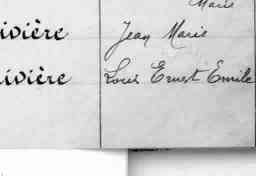 Marie
ivière Jean Marie
ivière Louis Ernest Emile